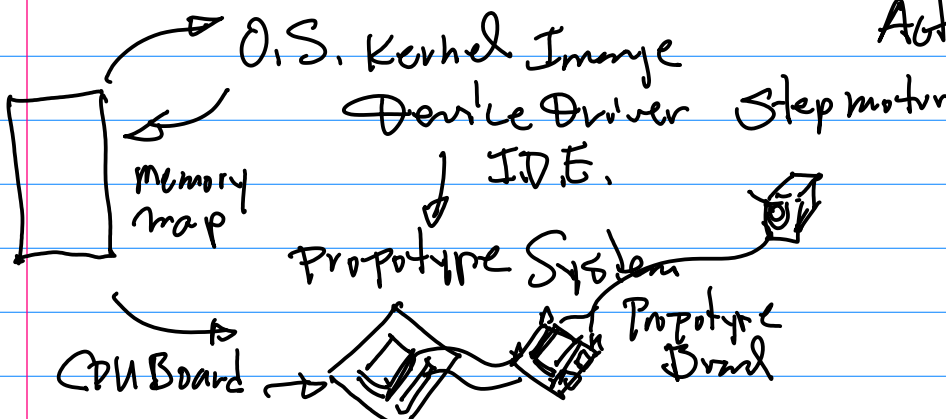 O.S. Kernel Image
Device Driver Step motor
I.D.E.
memory
map
Propotype System
Propotype
Brard
CPU Board